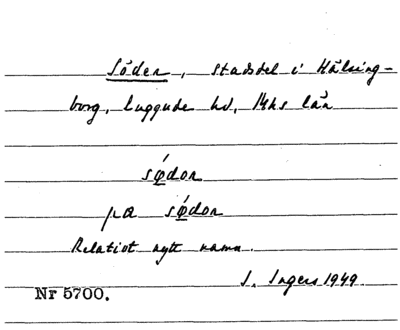 Söder, stadsdel i Hälsing-
borg, Luggude hd, Mhs län
sǿdər
pa sǿdər
Relativt nytt namn.
I. Ingers 1949
Nr 5700.